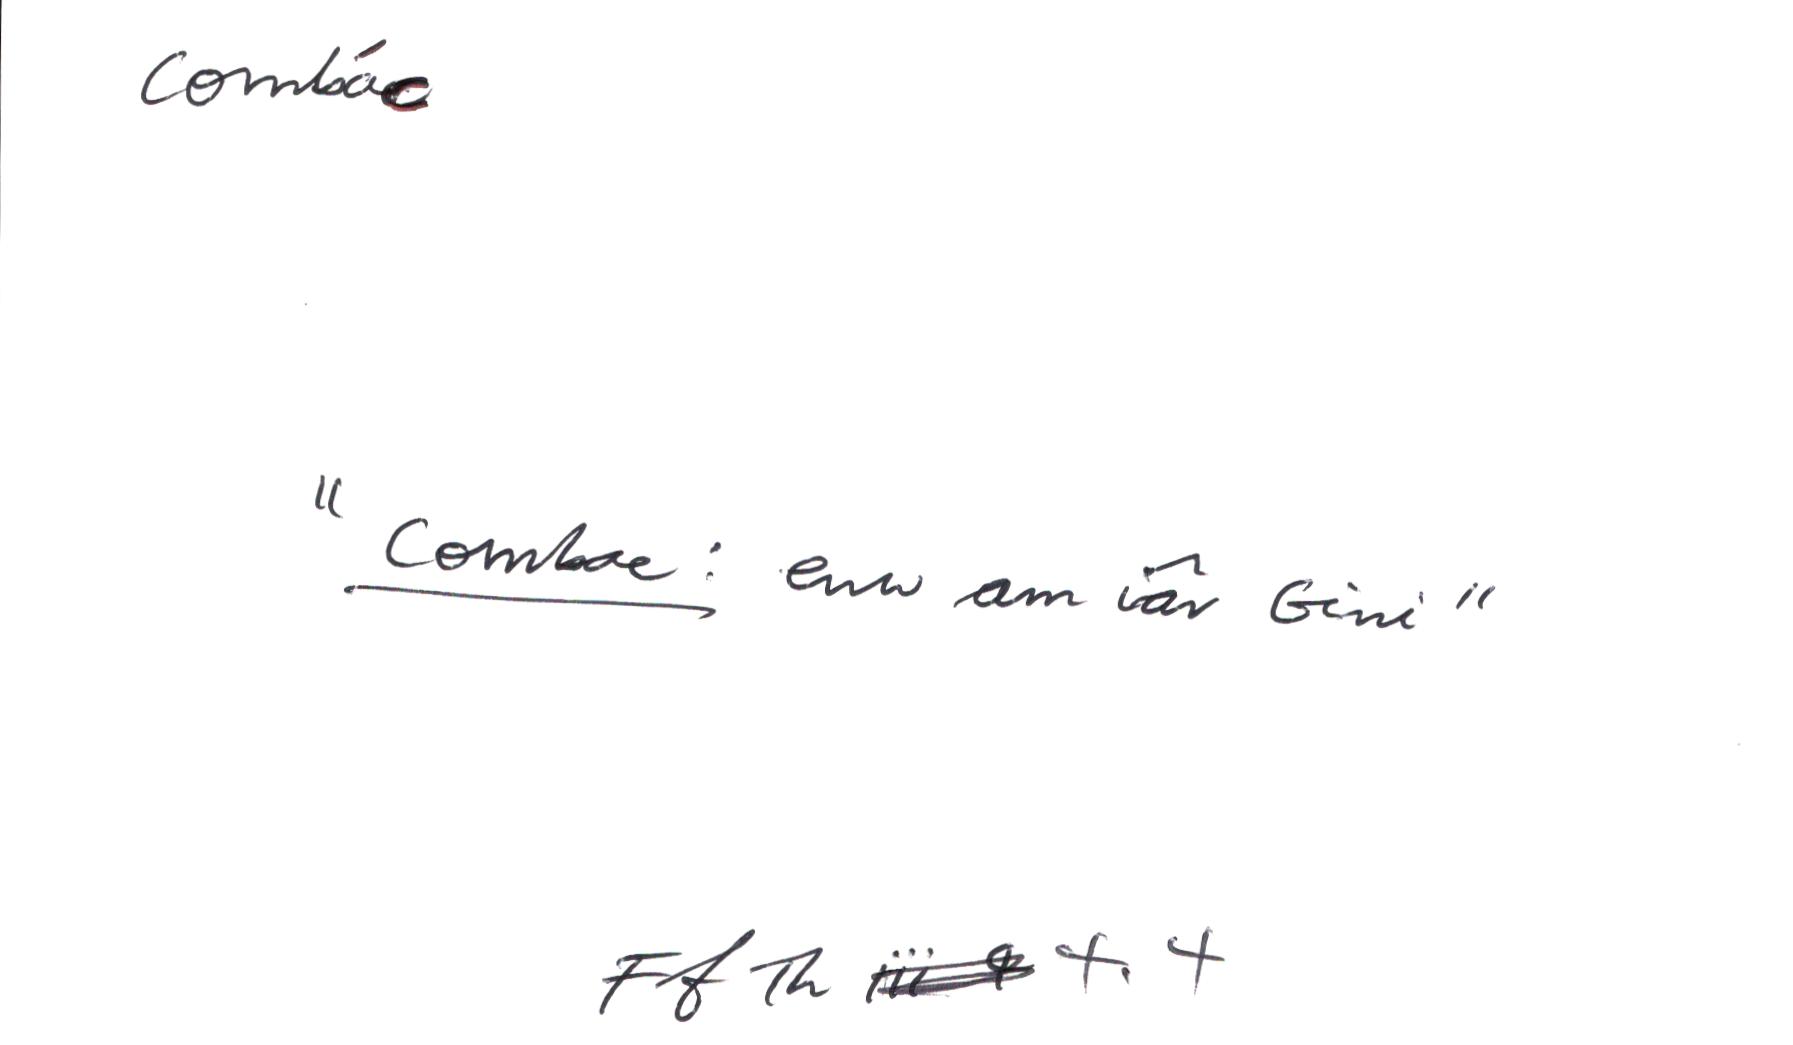 Combác
"Combac: enw am iâr Gini"
Ff Th 4.4